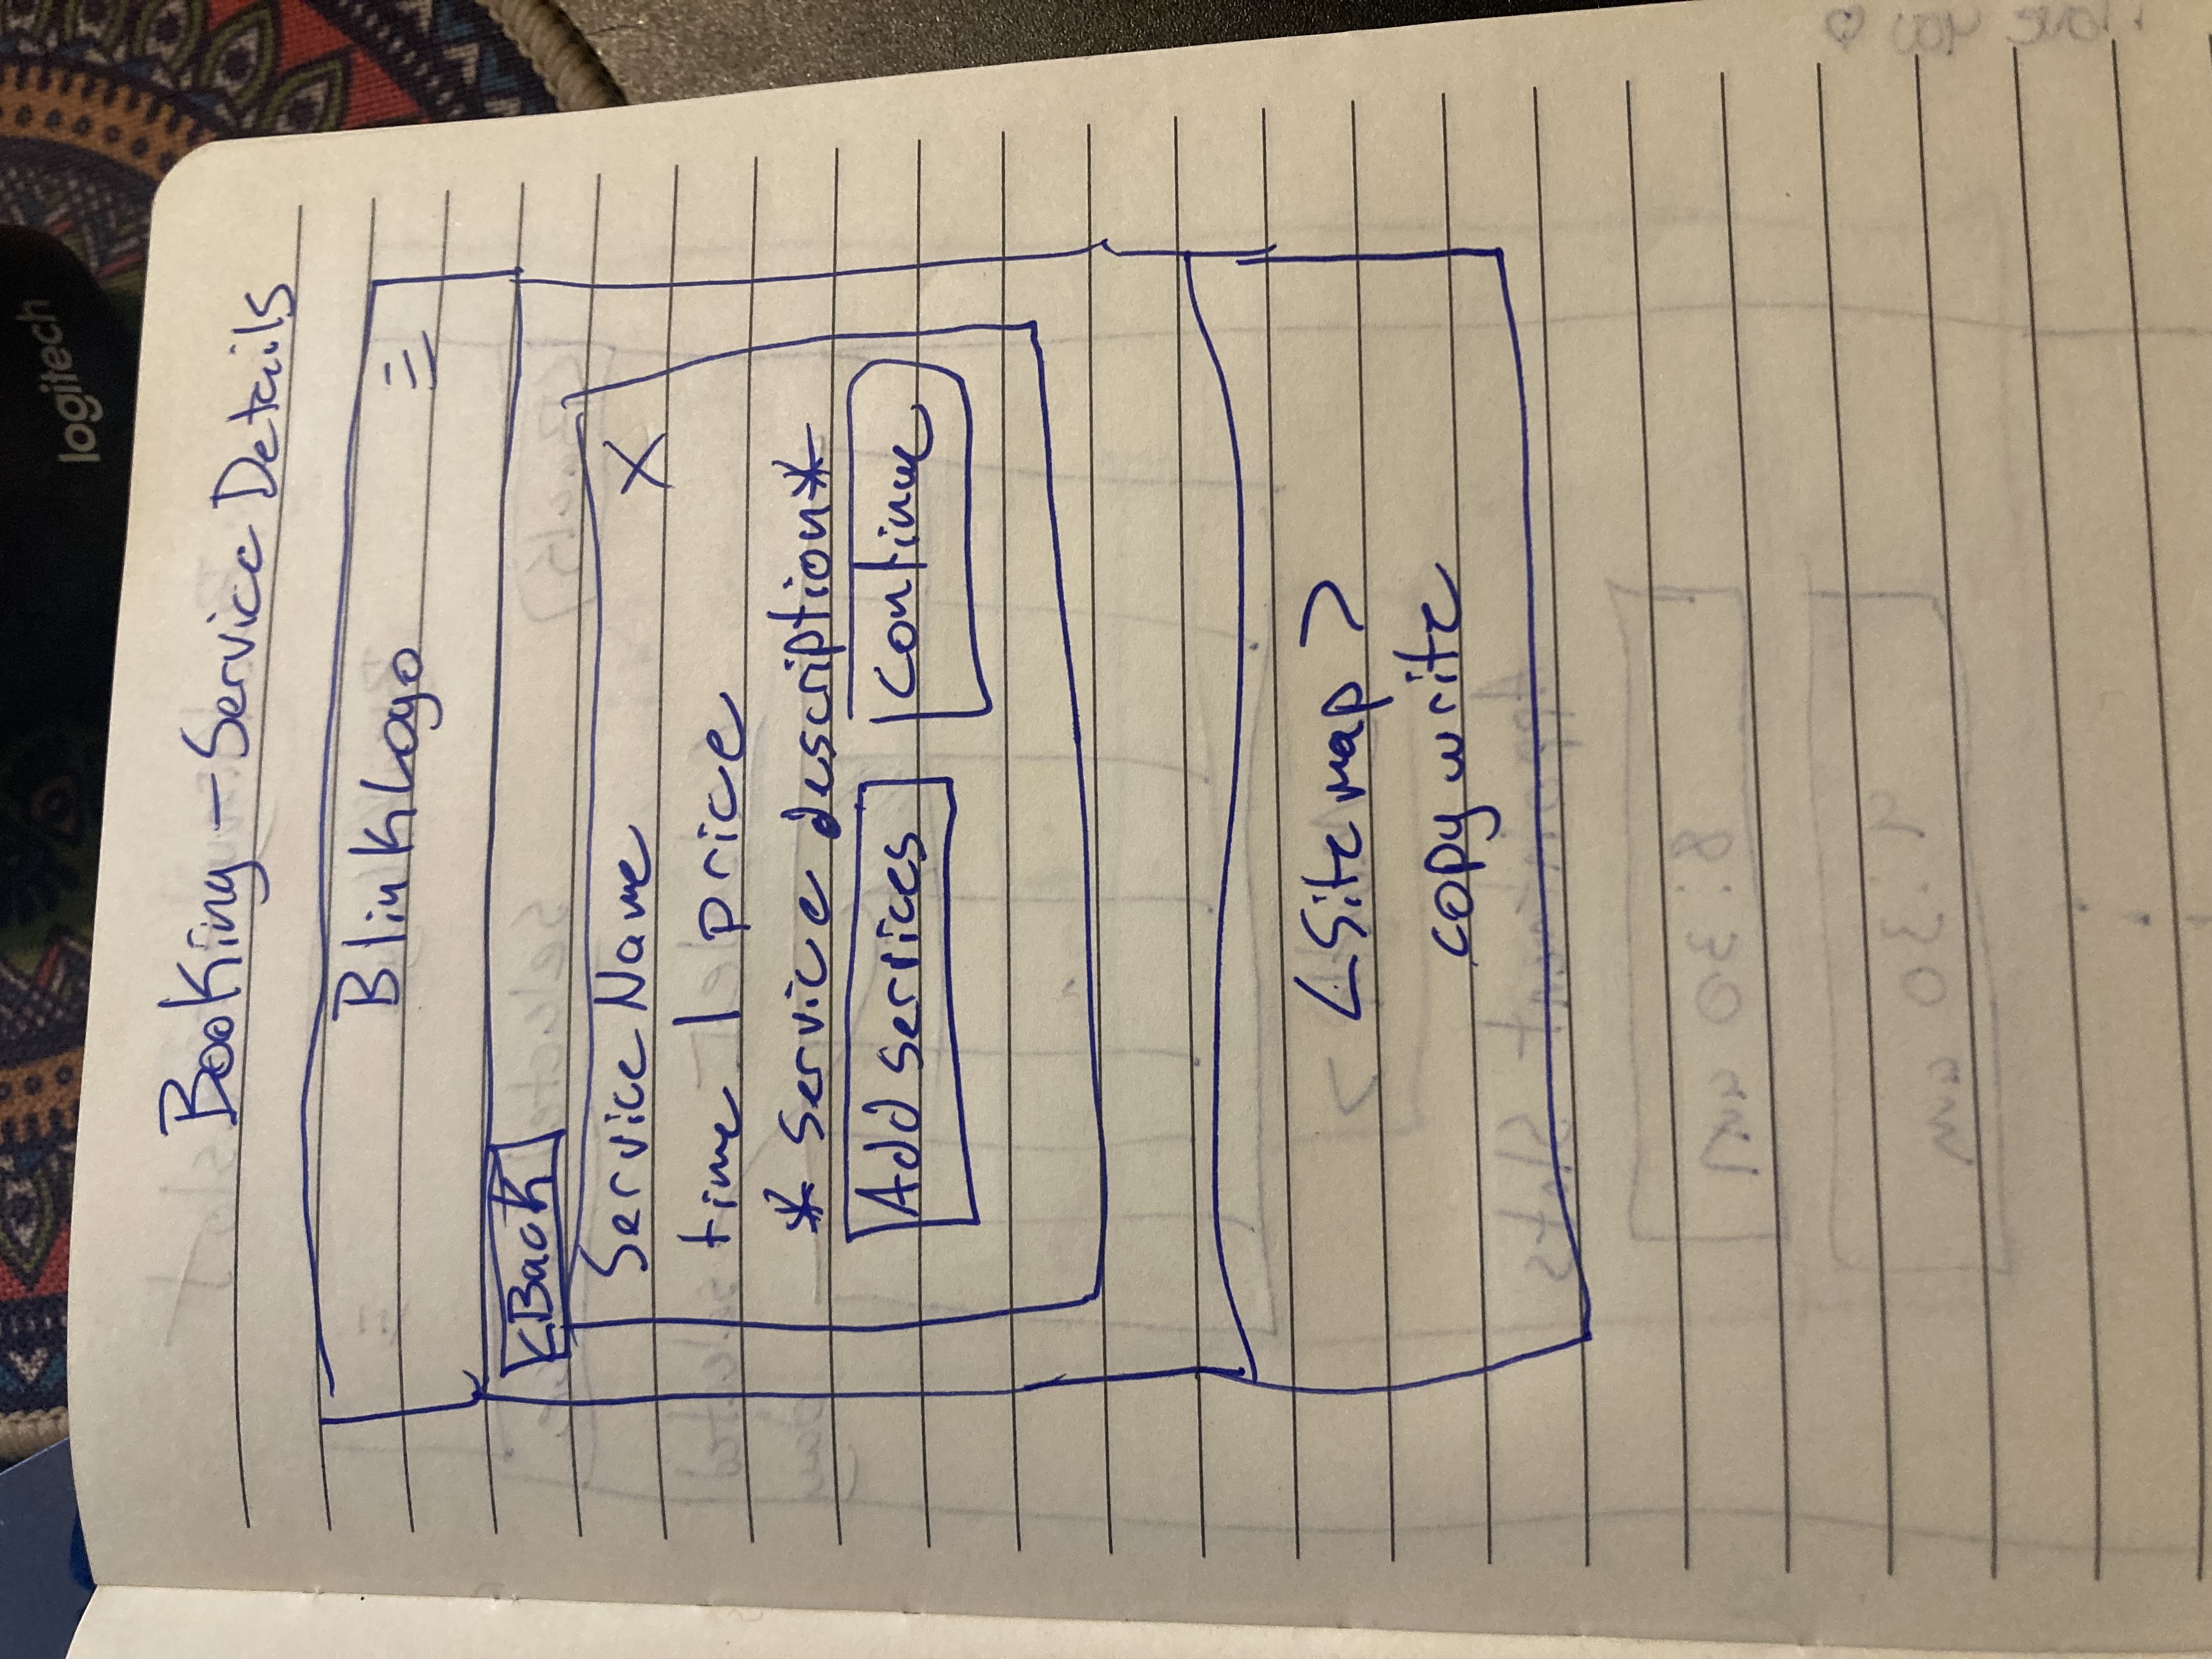 logitech
Booking - Service Details
Blink Logo
<Back
Service Name X
time | price
* Service description *
Add services Continue
<Site map>
copy write
Appointment Slots
8:30 am
9:30 am